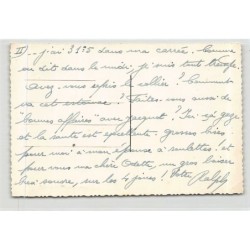 II) ... j'ai 31°5 dans ma carrée. Comme
on dit dans le midi, je suis tout trempe
Avez-vous repris le collier? Comment
va cet estomac? Faites-vous aussi de
"bonnes affaires" avec
et la santé est excellent, grosses bises
pour moi à mon à roulettes! et
pour vous ma chère Odette, un gros baiser
bien sonore, sur les 4 joues! Votre Ralph